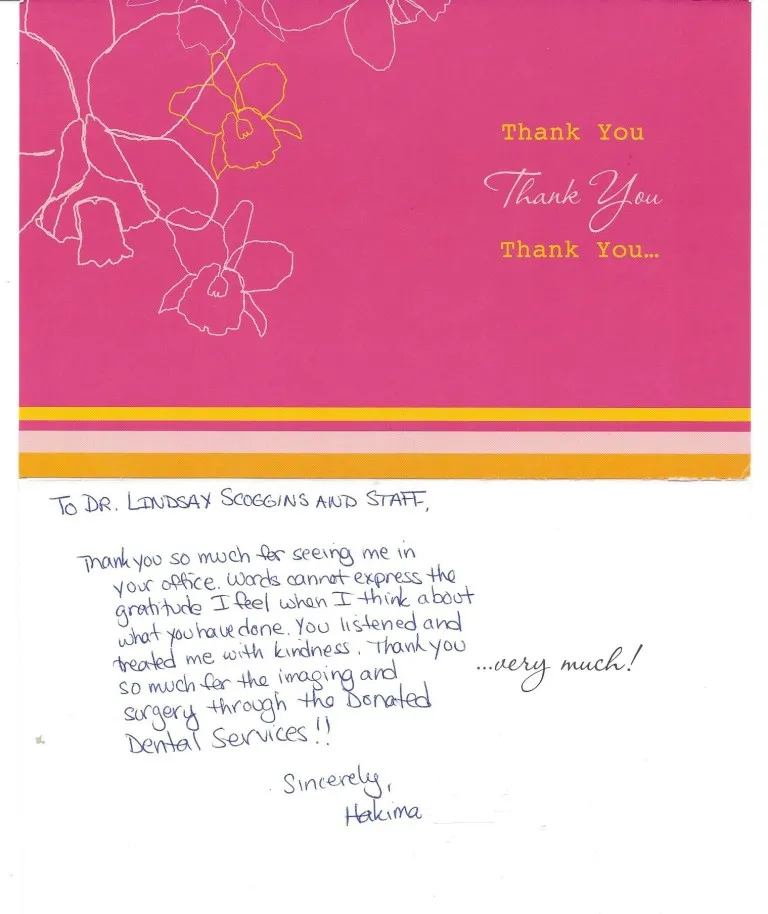 Thank You
Thank You
Thank You...
TO DR. LINDSAY SCOGGINS AND STAFF,
Thank you so much for seeing me in
your office. Words cannot express the
gratitude I feel when I think about
what you have done. You listened and
treated me with kindness. Thank you
so much for the imaging and
surgery through the Donated
Dental Services!!
...very much!
Sincerely,
Hakima